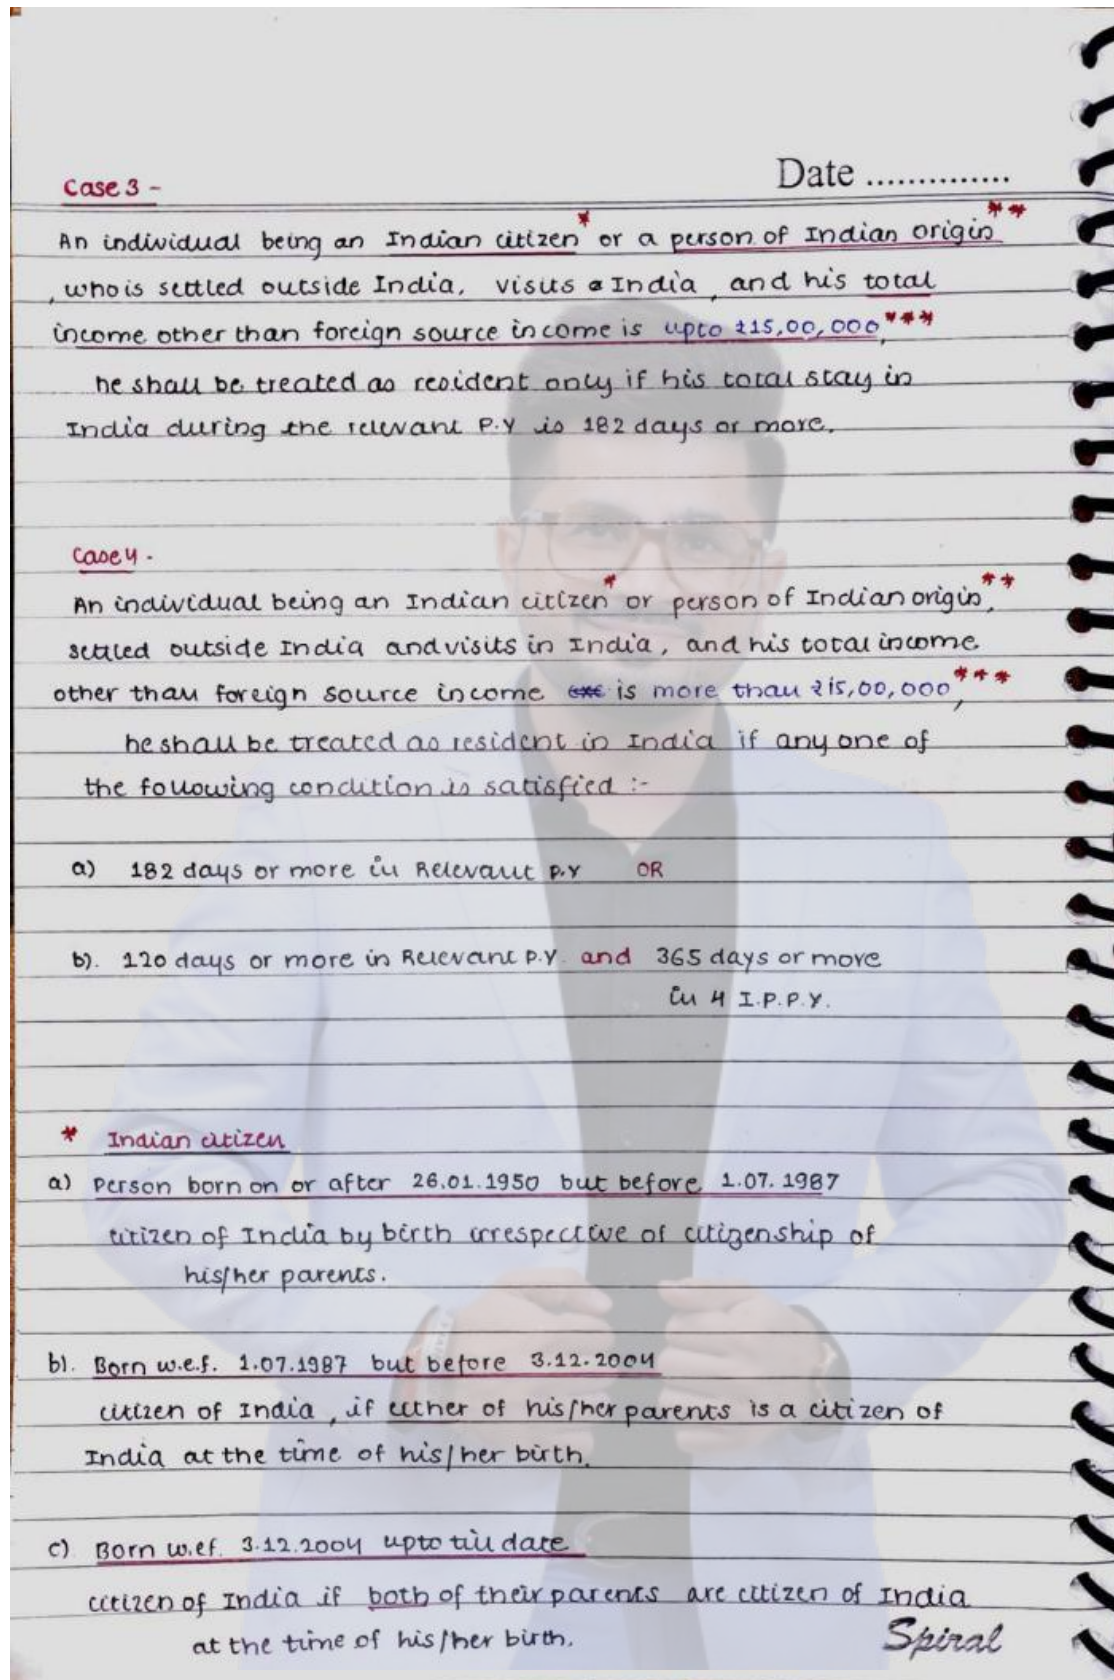 Date ..............
Case 3 -
An individual being an Indian citizen* or a person of Indian origin**
, who is settled outside India, visits India, and his total
income other than foreign source income is upto ₹15,00,000***,
he shall be treated as resident only if his total stay in
India during the relevant P.Y is 182 days or more.
Case 4 -
An individual being an Indian citizen* or person of Indian origin,**
settled outside India and visits in India, and his total income
other than foreign source income is more than ₹15,00,000***,
he shall be treated as resident in India if any one of
the following condition is satisfied :-
a) 182 days or more in Relevant P.Y OR
b). 120 days or more in Relevant P.Y. and 365 days or more
in 4 I.P.P.Y.
* Indian citizen
a) Person born on or after 26.01.1950 but before 1.07.1987
citizen of India by birth irrespective of citizenship of
his/her parents.
b). Born w.e.f. 1.07.1987 but before 3.12.2004
citizen of India, if either of his/her parents is a citizen of
India at the time of his/her birth.
c) Born w.e.f. 3.12.2004 upto till date
citizen of India if both of their parents are citizen of India
at the time of his/her birth.
Spiral